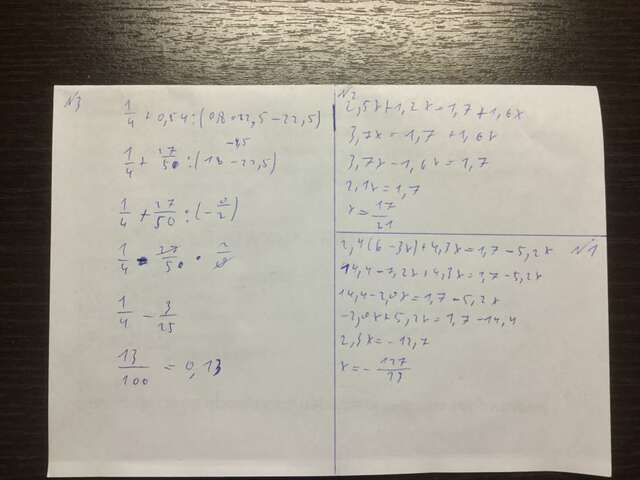 N3
1/4 + 0,54 : (0,8 · 22,5 − 22,5)
−4,5
1/4 + 27/50 : (18 − 22,5)
1/4 + 27/50 : (− 9/2)
1/4 − 27/50 · 2/9
1/4 − 3/25
13/100 = 0,13
N2
2,5x + 1,2x = 1,7 + 1,6x
3,7x = 1,7 + 1,6x
3,7x − 1,6x = 1,7
2,1x = 1,7
x = 17/21
2,4(6 − 3x) + 4,3x = 1,7 − 5,2x N1
14,4 − 7,2x + 4,3x = 1,7 − 5,2x
14,4 − 2,9x = 1,7 − 5,2x
−2,9x + 5,2x = 1,7 − 14,4
2,3x = −12,7
x = − 127/23